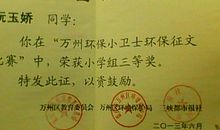 阮玉娇 同学：
你在“万州环保小卫士环保征文
比赛”中，荣获小学组三等奖。
特发此证，以资鼓励。
万州区教育委员会 万州区环境保护局 三峡都市报社
二〇一三年六月